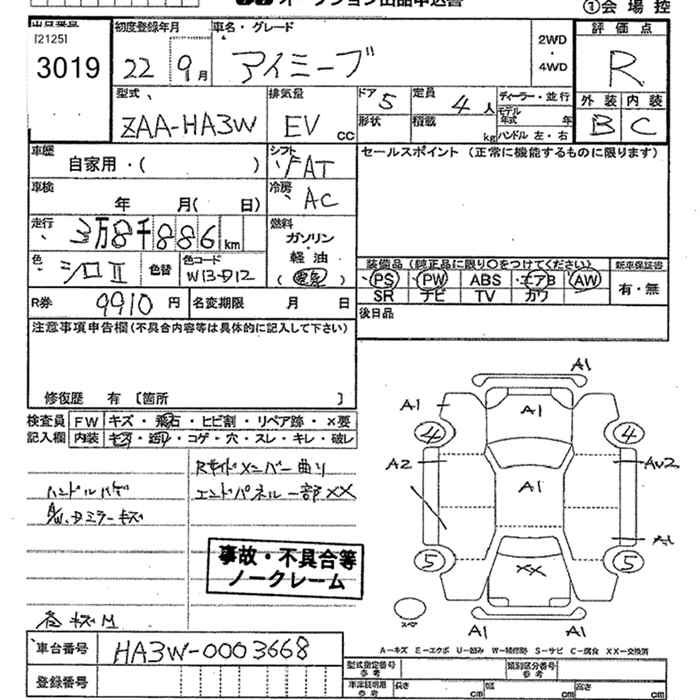 ①会場控
[2125]
3019
初度登録年月
22 9月
車名・グレード
アイミーブ
2WD
・
4WD
評価点
R
外装 内装
B C
型式
ZAA-HA3W
排気量
EV CC
ドア 5
形状
定員 4人
積載 kg
ディーラー・並行
モデル年式 年
ハンドル 左・右
車歴
自家用・( )
シフト
FAT
セールスポイント (正常に機能するものに限ります)
車検
年 月( 日)
冷房
AC
走行
3万8千886km
燃料
ガソリン
・
軽油
(電気)
色
シロII
色替
色コード
W13-D12
装備品 (純正品に限り○をつけてください)
PS PW ABS エアB AW
SR ナビ TV カワ
新車保証書
有・無
R券 9910円
名変期限 月 日
後日品
注意事項申告欄(不具合内容等は具体的に記入して下さい)
修復歴 有 [箇所 ]
検査員記入欄
FW キズ・飛石・ヒビ割・リペア跡・×要
内装 キズ・汚レ・コゲ・穴・スレ・キレ・破レ
Rサイドメンバー曲り
ハンドルハゲ
エンドパネル一部XX
A/W、Dミラーキズ
事故・不具合等
ノークレーム
A1
A1
A1
4
4
A2
AW2
A1
A1
5
5
XX
A1
A1
A-キズ E-エクボ U-凹み W-補修跡 S-サビ C-腐食 XX-交換済
車台番号
HA3W-0003668
登録番号
型式指定番号 参考
類別区分番号 参考
車庫証明用 参考
長さ cm
幅 cm
高さ cm